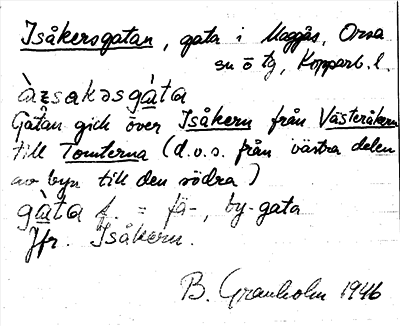 Isåkersgatan, gata i Maggås, Orsa
sn ö tg, Kopparb. l.
àzsakəsgàta
Gatan gick över Isåkern från Västeråkern
till Tomterna (d.v.s. från västra delen
av byn till den södra)
gàta f. = fä-, by-gata
Jfr. Isåkern.
B. Granholm 1946